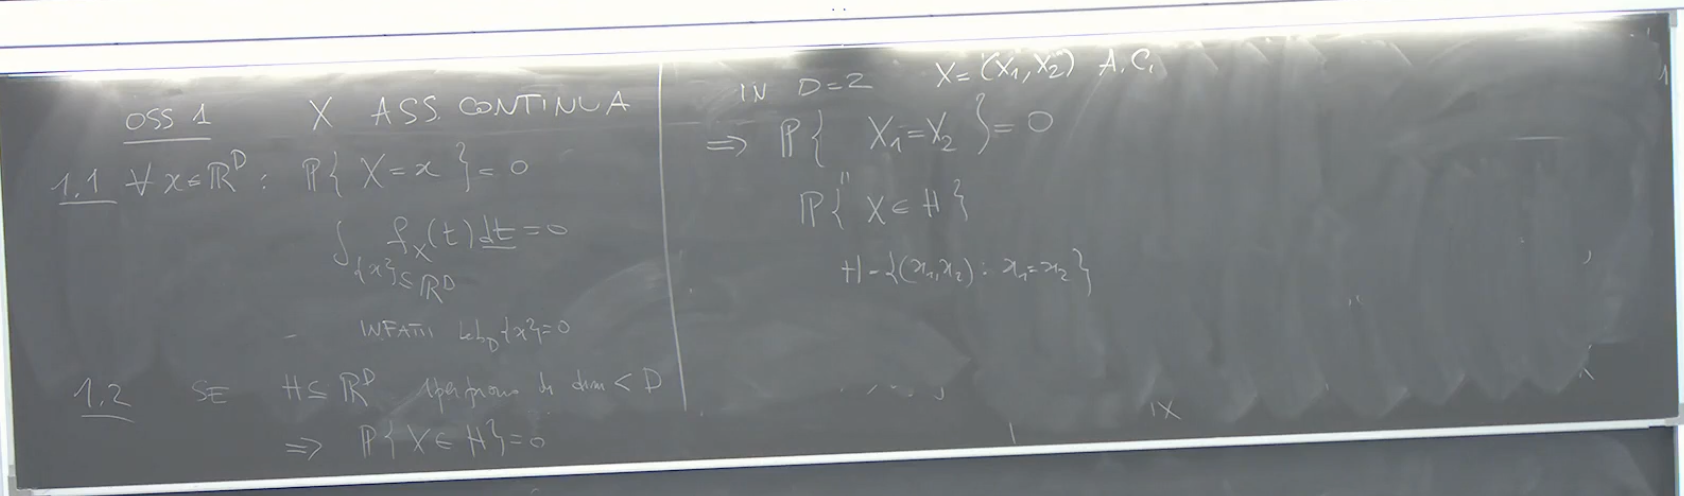 OSS 1 X ASS. CONTINUA
1.1 ∀ x ∈ ℝ^D : ℙ{ X = x } = 0
∫_{{x} ⊆ ℝ^D} f_X(t) dt = 0
- INFATTI Leb_D {x} = 0
1.2 SE H ⊆ ℝ^D iperpiano di dim < D
⟹ ℙ{ X ∈ H } = 0
IN D=2 X = (X_1, X_2) A.C.
⟹ ℙ{ X_1 = X_2 } = 0
"
ℙ{ X ∈ H }
H = {(x_1, x_2) : x_1 = x_2}